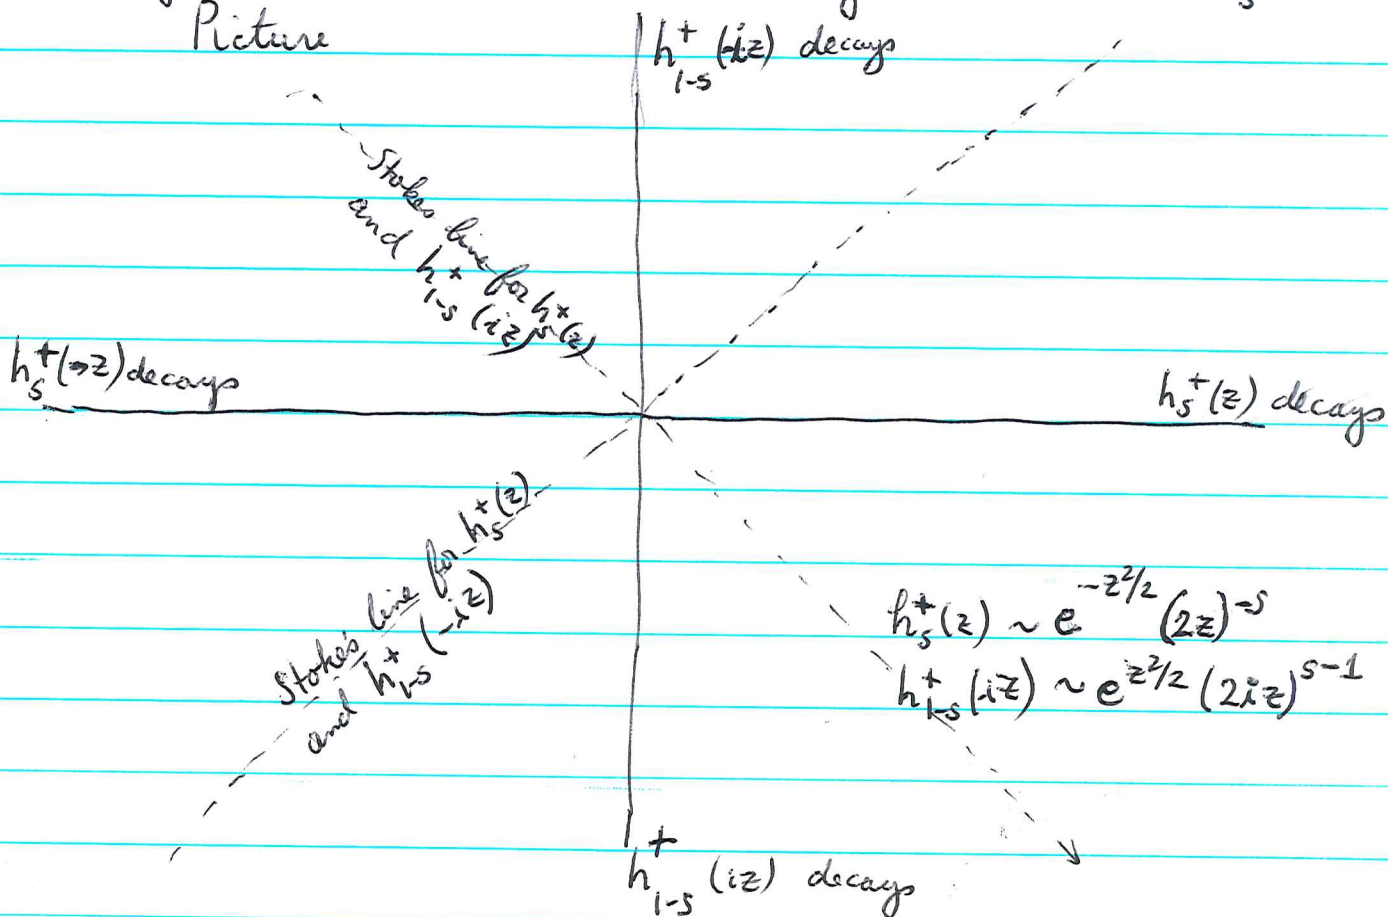 Picture
h⁺₁₋ₛ(-iz) decays
Stokes line for h⁺ₛ(z)
and h⁺₁₋ₛ(iz)
h⁺ₛ(-z) decays
h⁺ₛ(z) decays
Stoke's line for h⁺ₛ(z)
and h⁺₁₋ₛ(-iz)
h⁺ₛ(z) ~ e^{-z²/2} (2z)^{-s}
h⁺₁₋ₛ(iz) ~ e^{z²/2} (2iz)^{s-1}
h⁺₁₋ₛ(iz) decays